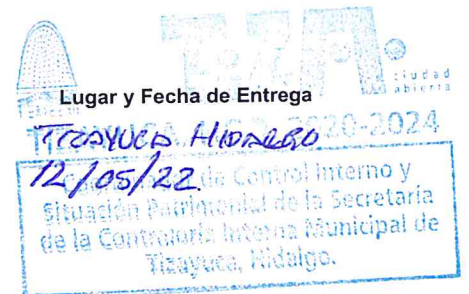 ciudad
abierta
Lugar y Fecha de Entrega
TIZAYUCA HIDALGO
2020-2024
12/05/22
de Control Interno y
Situación Patrimonial de la Secretaría
de la Contraloría Interna Municipal de
Tizayuca, Hidalgo.